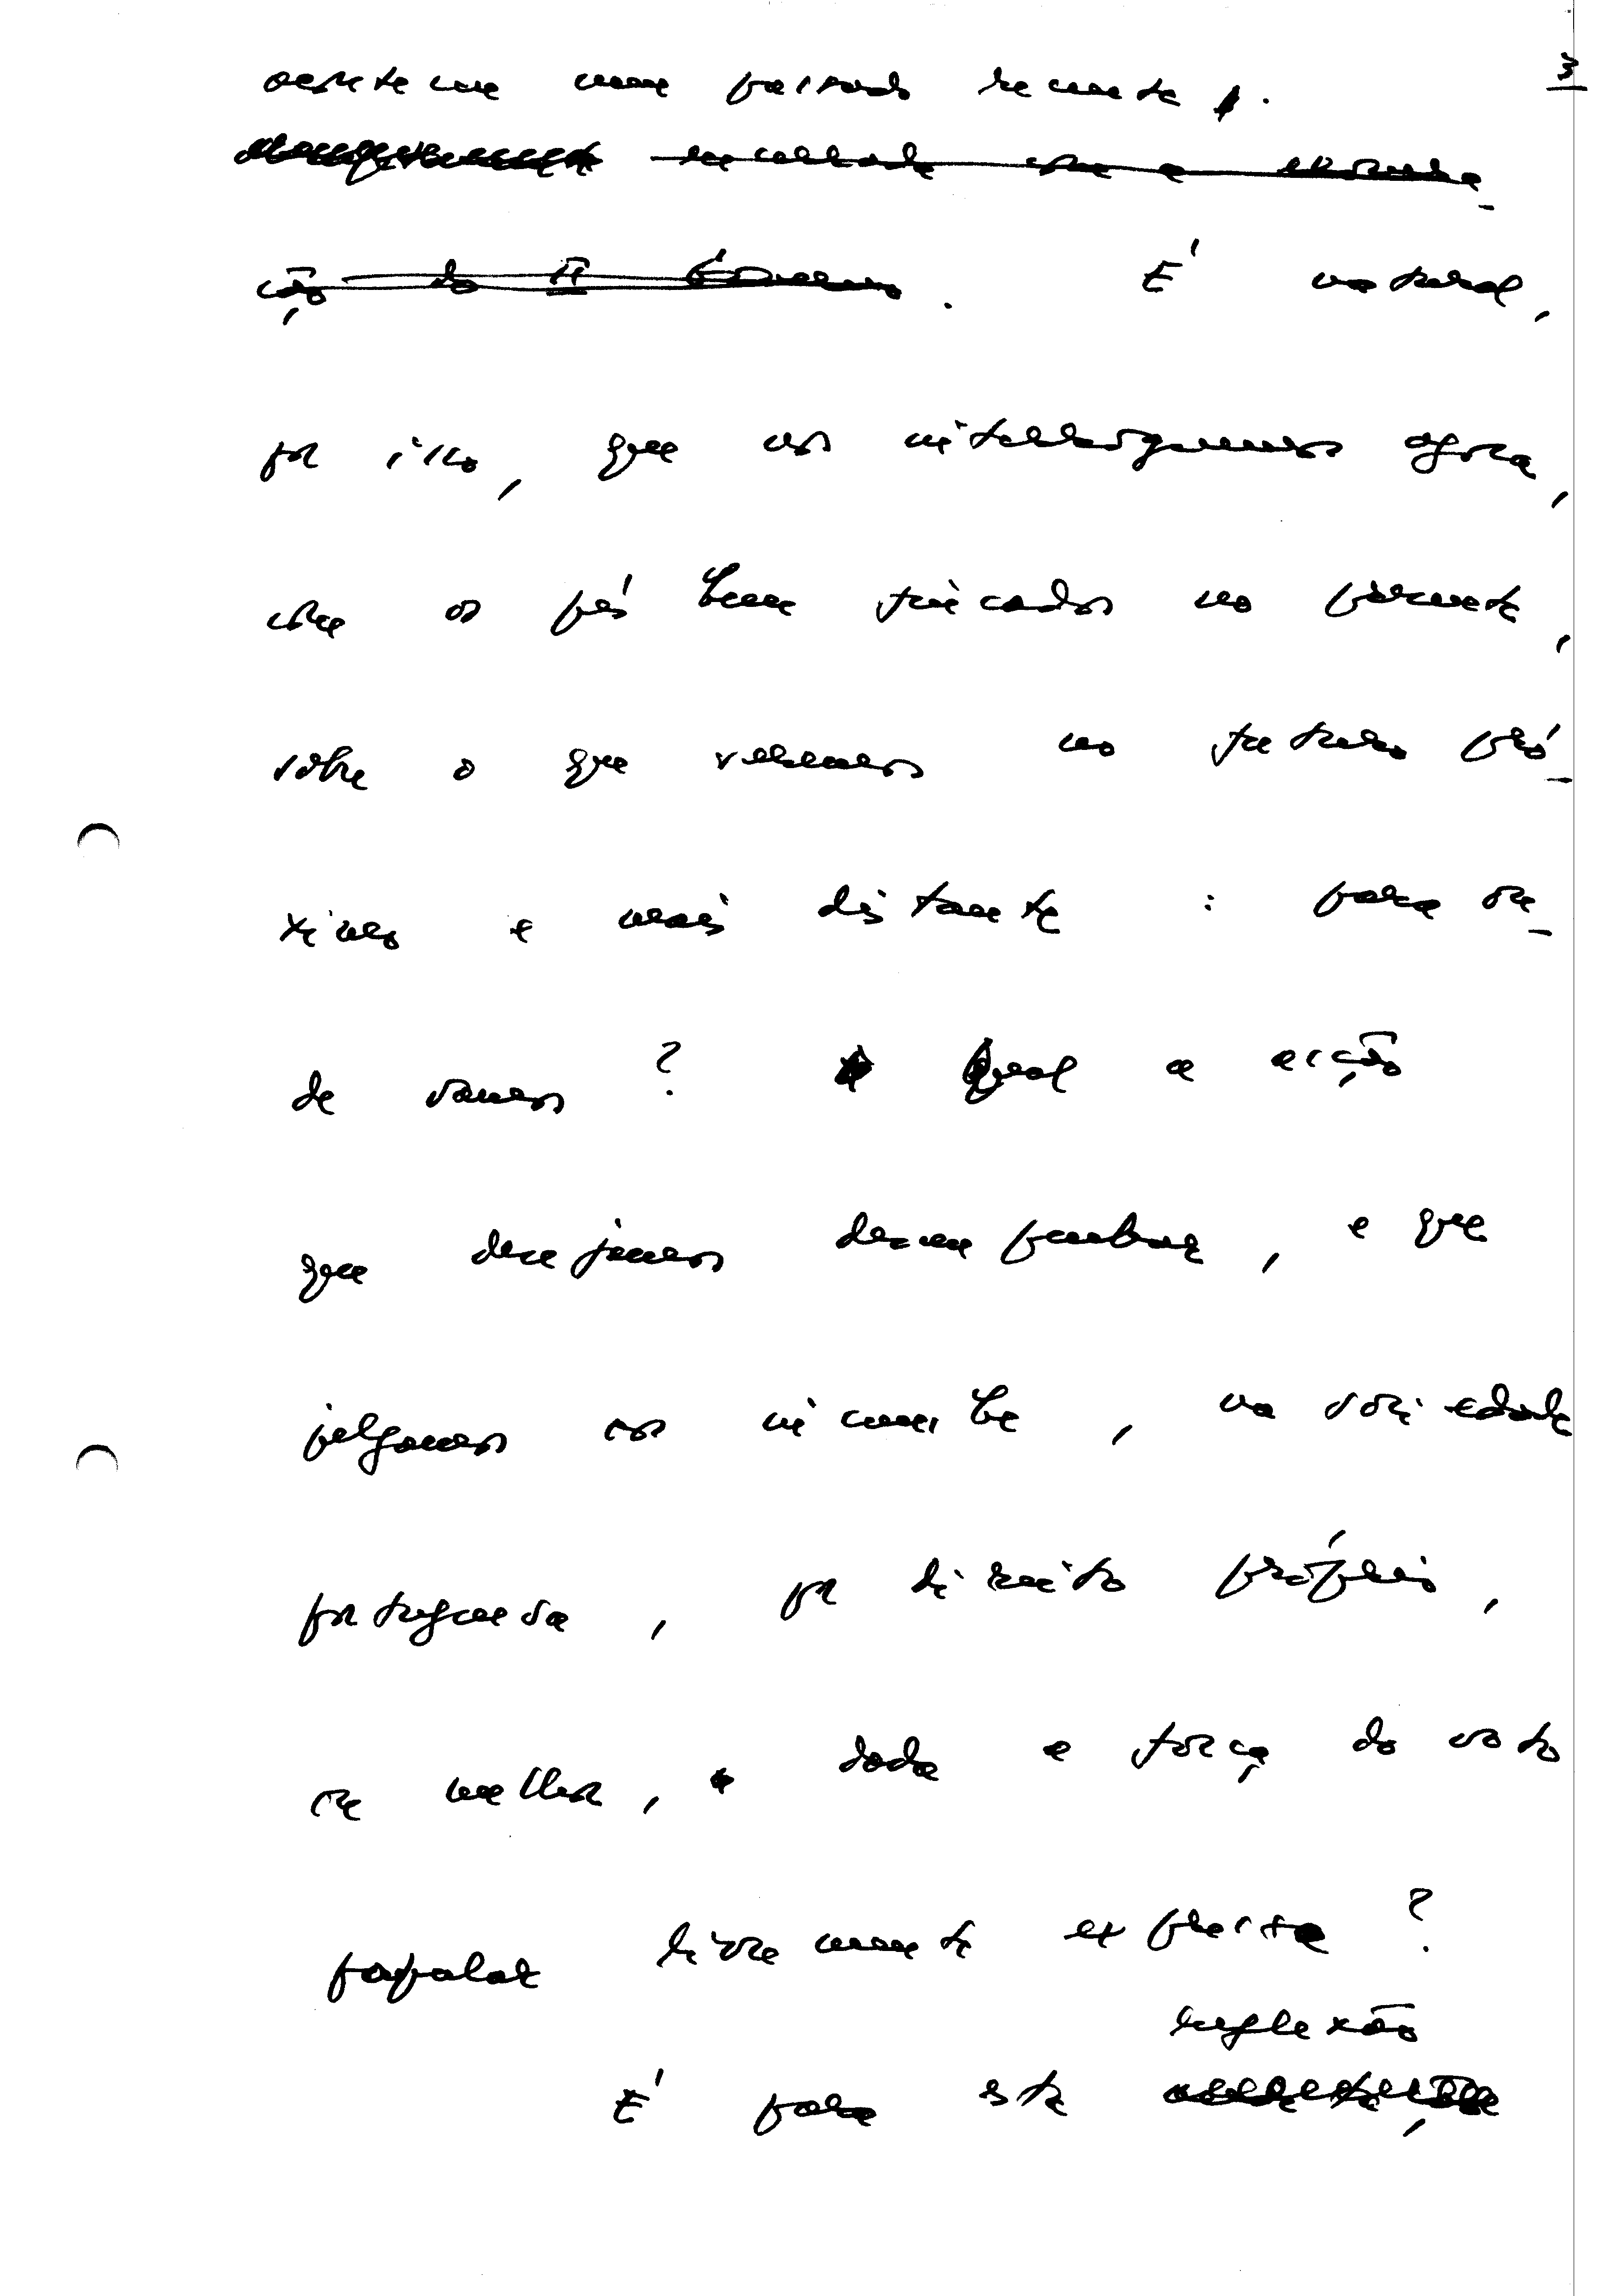 3
num passado recente.
com a exonera-
ção do II Governo. É natural,
por isso, que nos interroguemos agora,
com os pés bem fincados no presente,
sobre o que seremos no futuro pró-
ximo e mais distante : para on-
de vamos ? Qual a acção
que desejamos desempenhar, e que
julgamos nos incumbe, na sociedade
portuguesa, por direito próprio,
ou melhor, dada a força do voto
popular livremente expressa ?
reflexão
É para esta